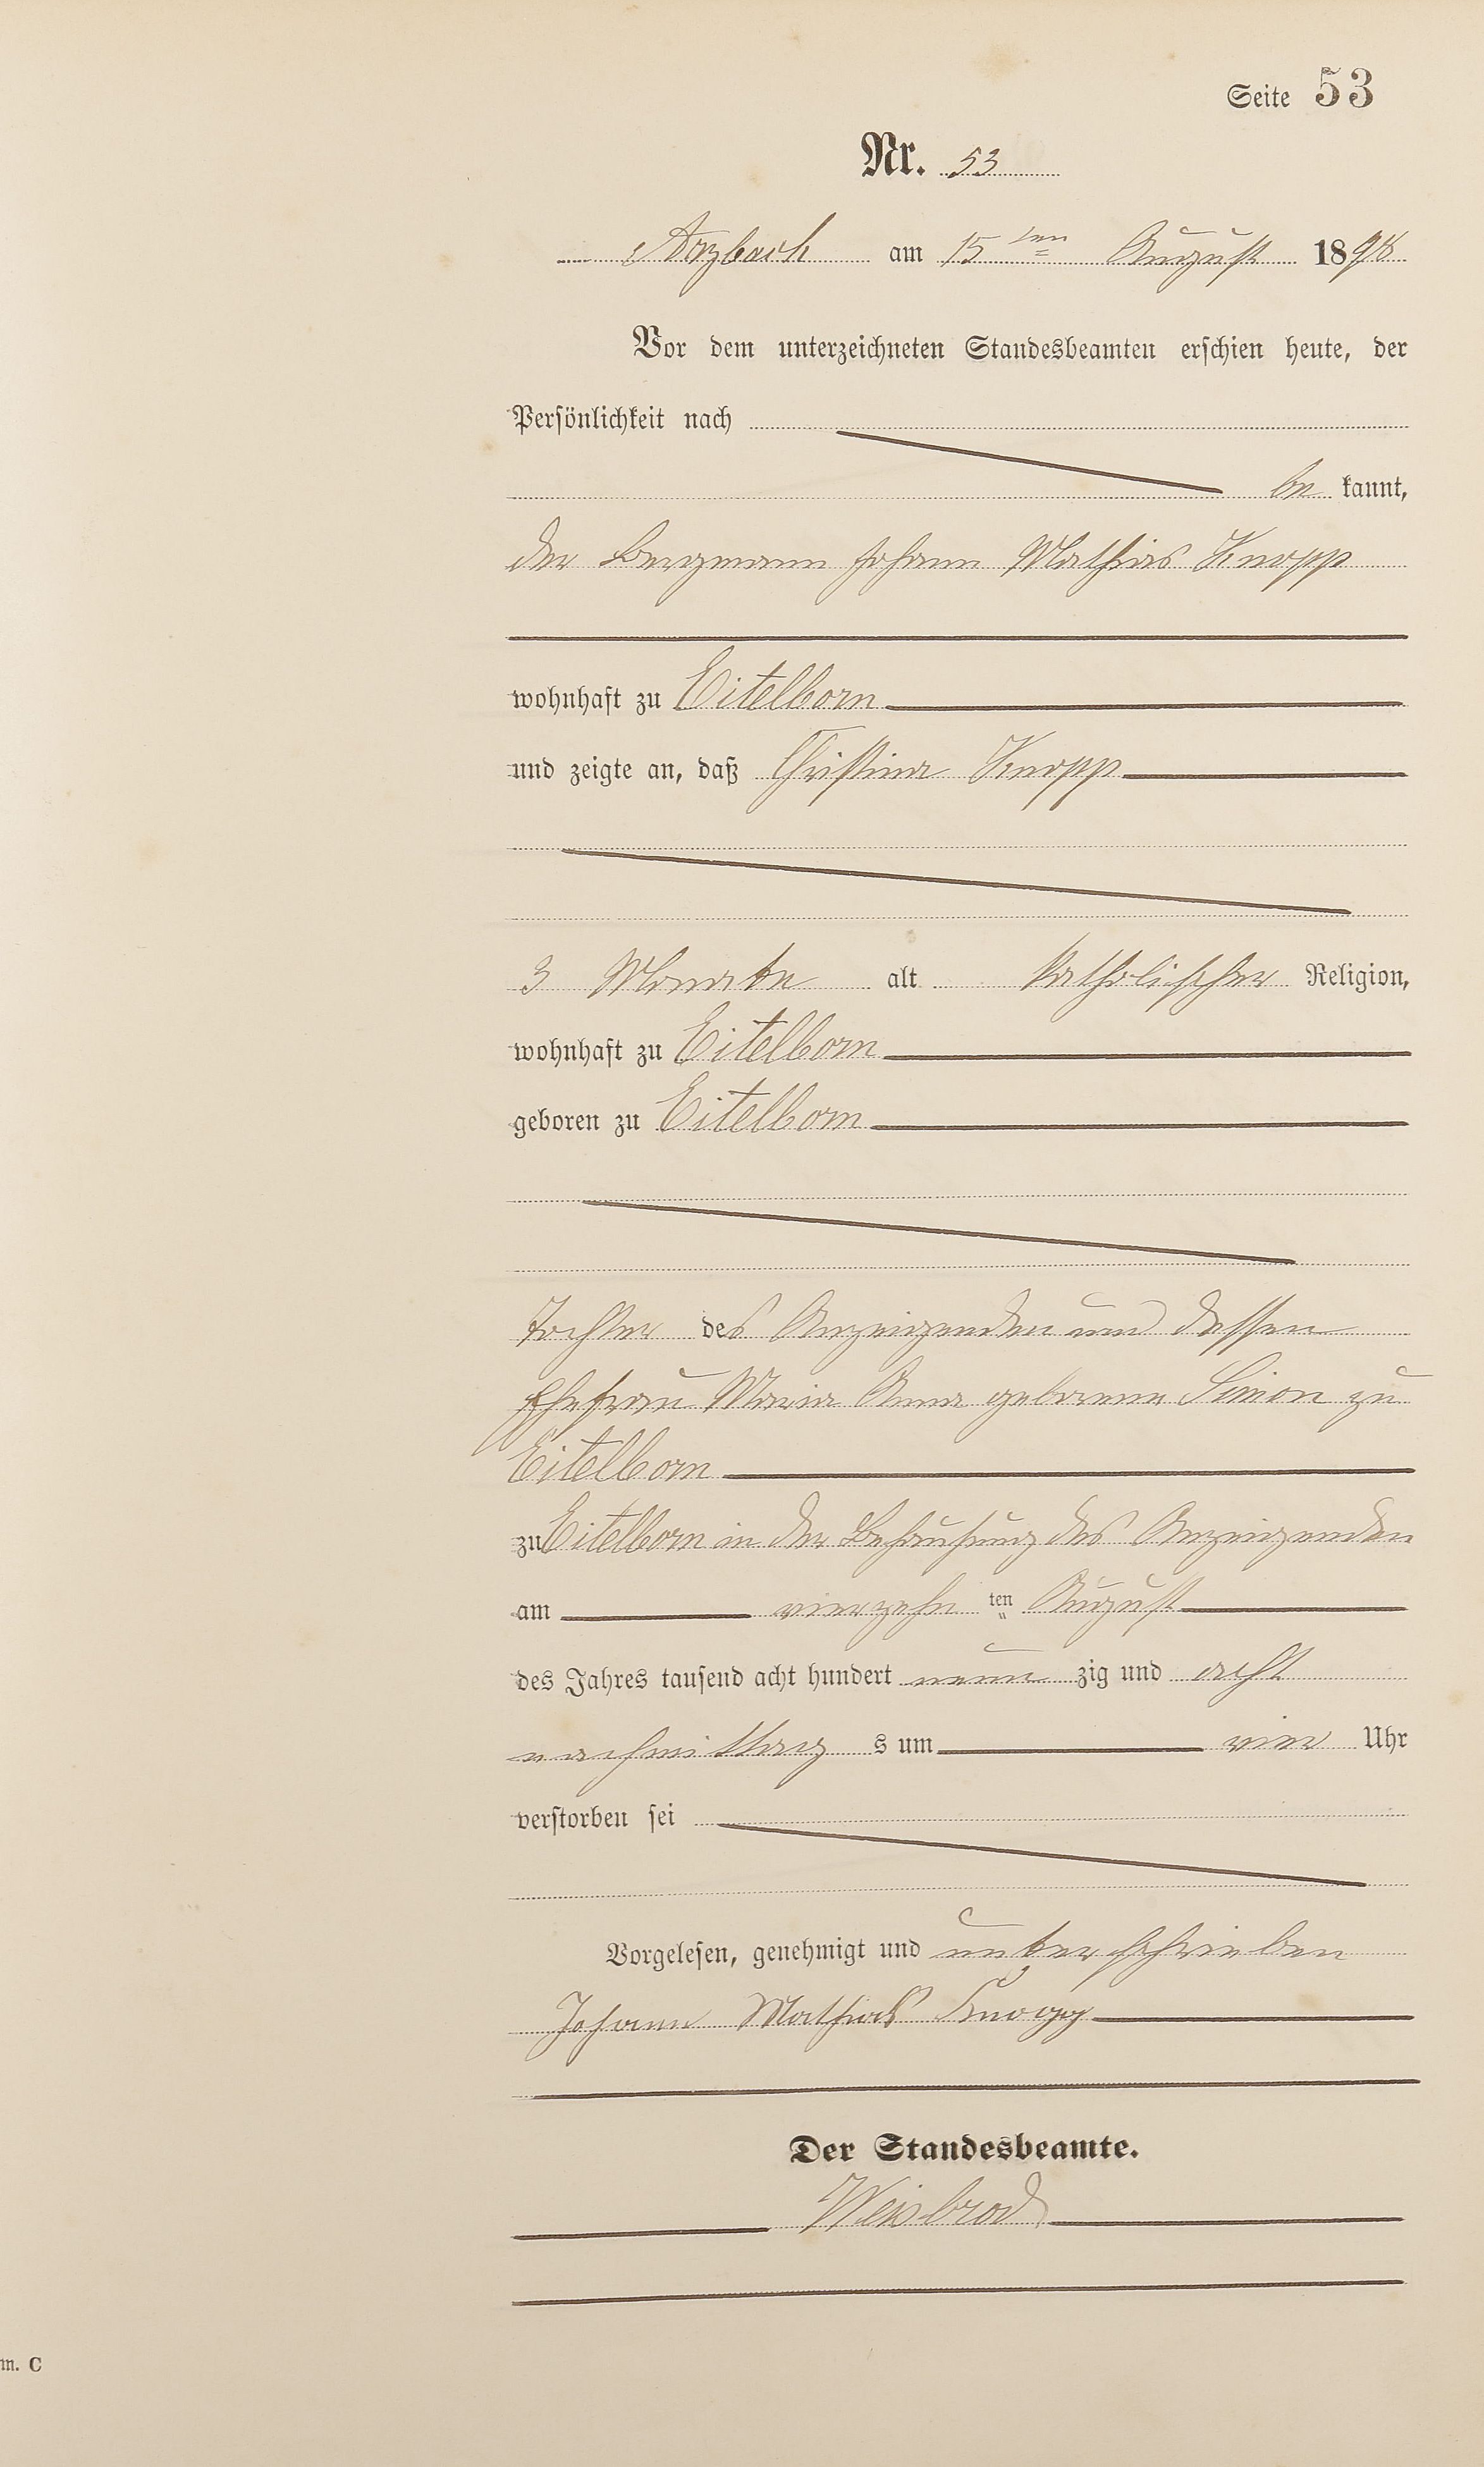 Seite 53
Nr. 53
Arzbach am 15ten August 1898
Vor dem unterzeichneten Standesbeamten erschien heute, der
Persönlichkeit nach
be kannt,
der Bergmann Johann Mathias Knopp
wohnhaft zu Eitelborn
und zeigte an, daß Christina Knopp
3 Monate alt katholischer Religion,
wohnhaft zu Eitelborn
geboren zu Eitelborn
Tochter des Anzeigenden und dessen
Ehefrau Maria Anna geborene Simon zu
Eitelborn
zu Eitelborn in der Behausung des Anzeigenden
am vierzehn ten August
des Jahres tausend acht hundert neun zig und acht
nachmittag s um vier Uhr
verstorben sei
Vorgelesen, genehmigt und unterschrieben
Johann Mathias Knopp
Der Standesbeamte.
Weisbrod
m. C